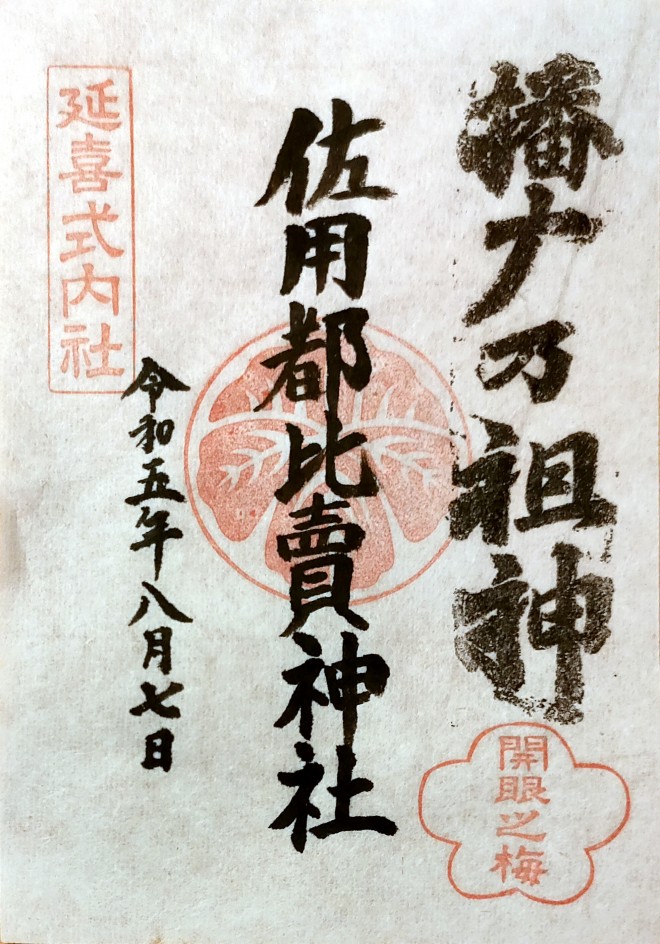 乃祖神
開眼之梅
佐用都比賣神社
延喜式内社
令和五年八月七日